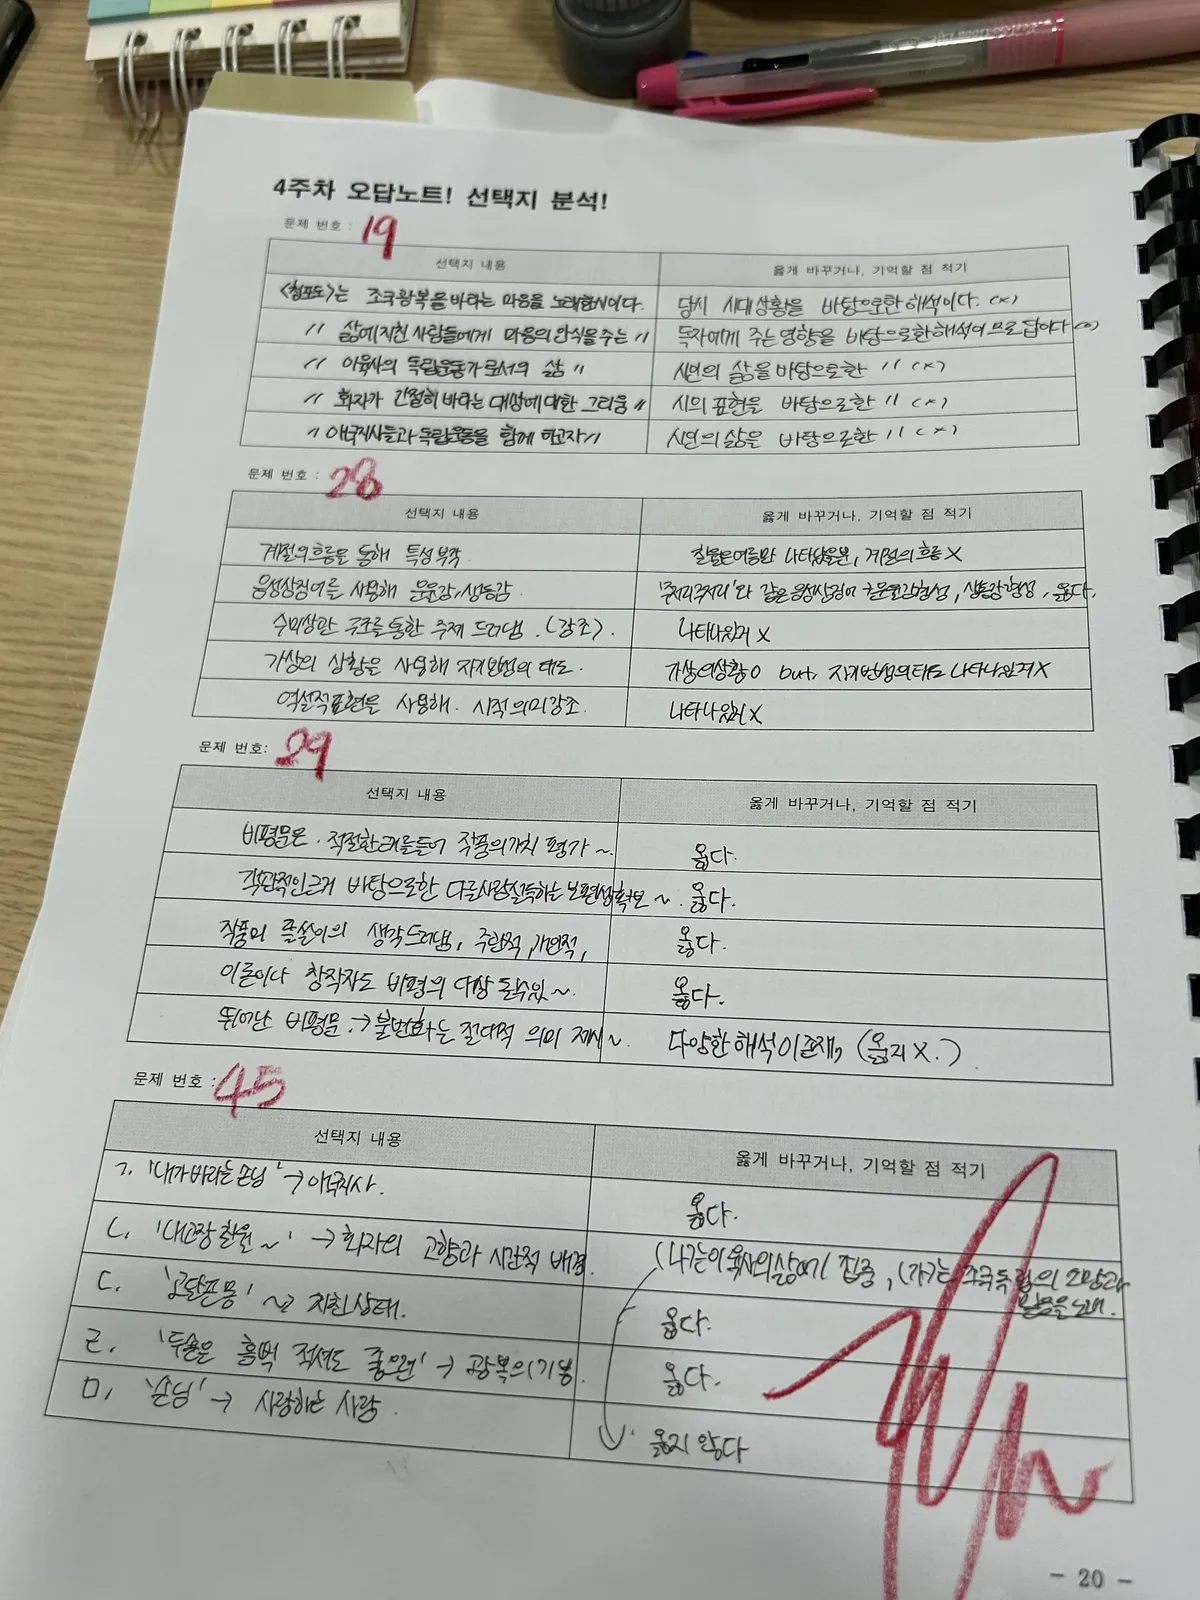 4주차 오답노트! 선택지 분석!
문제 번호 : 19
선택지 내용 옳게 바꾸거나, 기억할 점 적기
<청포도>는 조국광복을 바라는 마음을 노래한시이다. 당시 시대상황을 바탕으로한 해석이다. (x)
〃 삶에 지친 사람들에게 마음의 안식을 주는 〃 독자에게 주는 영향을 바탕으로한 해석이므로 답이다 (o)
〃 이육사의 독립운동가로서의 삶 〃 시인의 삶을 바탕으로한 〃 (x)
〃 화자가 간절히 바라는 대상에 대한 그리움 〃 시의 표현을 바탕으로한 〃 (x)
〃 애국지사들과 독립운동을 함께 하고자 〃 시인의 삶을 바탕으로한 〃 (x)
문제 번호 : 28
선택지 내용 옳게 바꾸거나, 기억할 점 적기
계절의 흐름을 통해 특성 부각. 여름만 나타났을뿐, 계절의 흐름 X
음성상징어를 사용해 운율감, 생동감 '주저리주저리'와 같은 음성상징어 운율감형성, 생동감형성, 옳다.
수미상관 구조를 통한 주제 드러냄. (강조). 나타나있지 X
가상의 상황을 사용해 자기반성의 태도. 가상의상황 O but, 자기반성의태도 나타나있지 X
역설적표현을 사용해. 시적의미강조. 나타나있지 X
문제 번호: 29
선택지 내용 옳게 바꾸거나, 기억할 점 적기
비평문은 적절한 근거를들어 작품의가치 평가 ~. 옳다.
객관적인근거 바탕으로한 다른사람설득하는 보편성확보 ~. 옳다.
작품의 글쓴이의 생각드러냄, 주관적, 개인적, 옳다.
이론이나 창작자도 비평의 대상 될수있 ~. 옳다.
뛰어난 비평문 → 불변하는 절대적 의미 제시 ~. 다양한 해석이 존재, (옳지 X.)
문제 번호 : 45
선택지 내용 옳게 바꾸거나, 기억할 점 적기
ㄱ. '내가 바라는 손님' → 애국지사. 옳다.
ㄴ. '내고장 칠월 ~' → 화자의 고향과 시간적 배경. (나)는 이육사의 삶에 집중, (가)는 조국독립의 소망과 믿음을 노래.
ㄷ. '고달픈 몸' ~> 지친상태. 옳다.
ㄹ. '두 손은 흠뻑 적셔도 좋으련' → 광복의 기쁨. 옳다.
ㅁ. '손님' → 사랑하는 사람. 옳지 않다
- 20 -